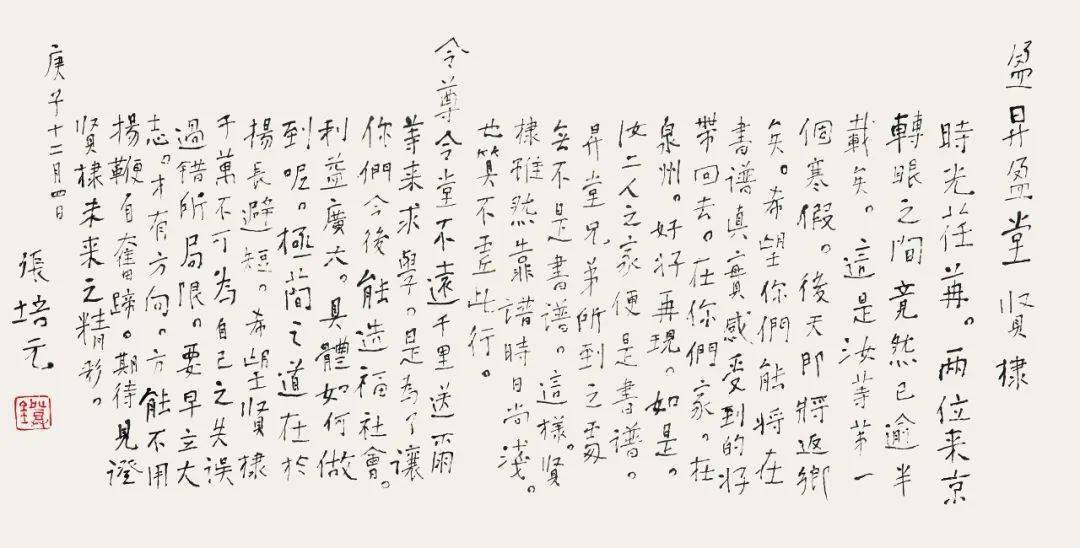 盈昇盈堂 贤棣
時光荏苒。两位来京
轉眼之間竟然已逾半
載矣。這是汝等第一
個寒假。後天即将返鄉
矣。希望你們能將在
書谱真實感受到的好
帶回去。在你們家。在
泉州。好好再現。如是。
汝二人之家便是書谱。
昇堂兄弟所到之處
無不是書谱。這樣。贤
棣雖然靠譜時日尚淺。
也算不虚此行。
令尊令堂不遠千里送爾
等来求學。是為了讓
你們今後能造福社會。
利益廣大。具體如何做
到呢。極简之道在於
揚長避短。希望贤棣
千萬不可為自己之失误
過错所局限。要早立大
志。才有方向。方能不用
揚鞭自奮蹄。期待見證
贤棣未来之精彩。
庚子十二月四日
張培元